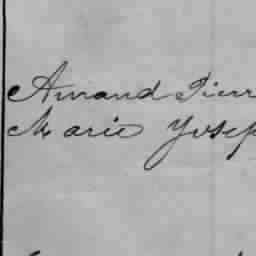 Amand Pierr
Marie Yosep